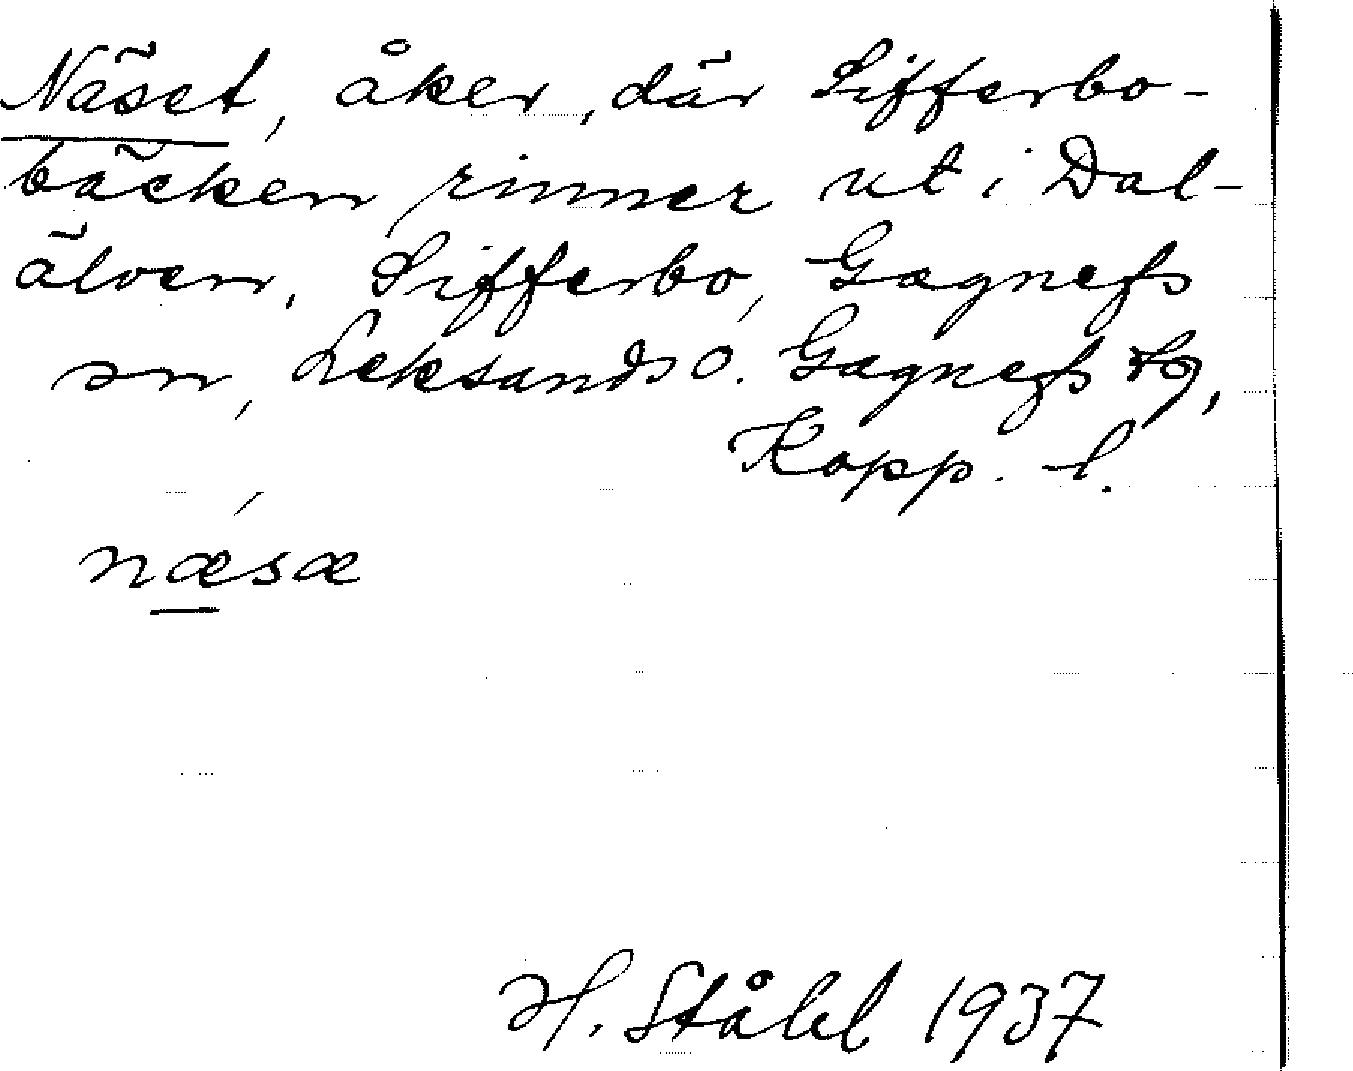 Näset, åker, där Sifferbo-
bäcken rinner ut i Dal-
älven, Sifferbo, Gagnefs
sn, Leksands o. Gagnefs tg,
Kopp. l.
næsæ
H. Ståhl 1937